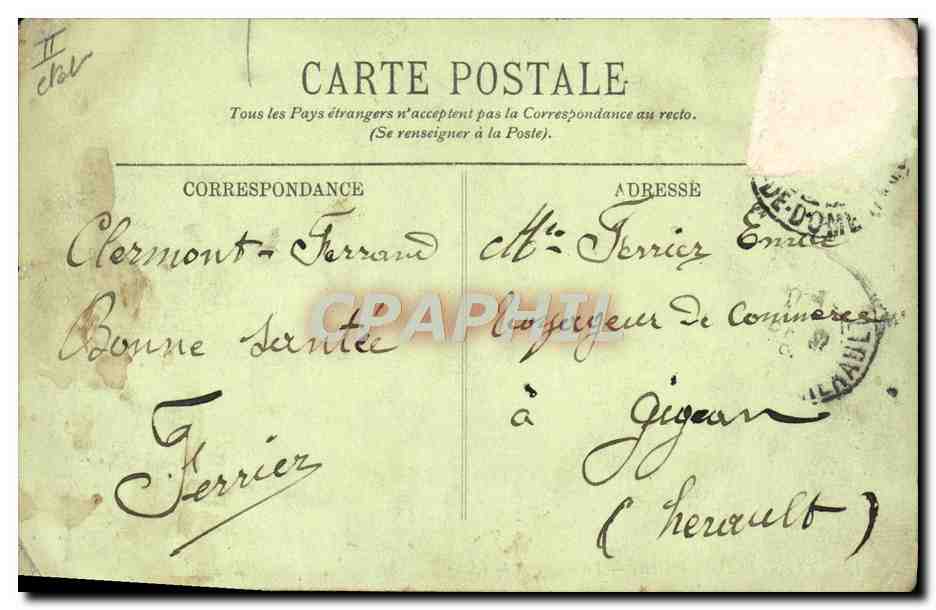 II
CARTE POSTALE
Tous les Pays étrangers n'acceptent pas la Correspondance au recto.
(Se renseigner à la Poste).
CORRESPONDANCE
Clermont-Ferrand
Bonne santée
Ferrier
ADRESSE
Ferrier Emile
Voyageur de Commerce
à Gigean
(herault)
DE-DOME
HERAULT
CPAPHIL